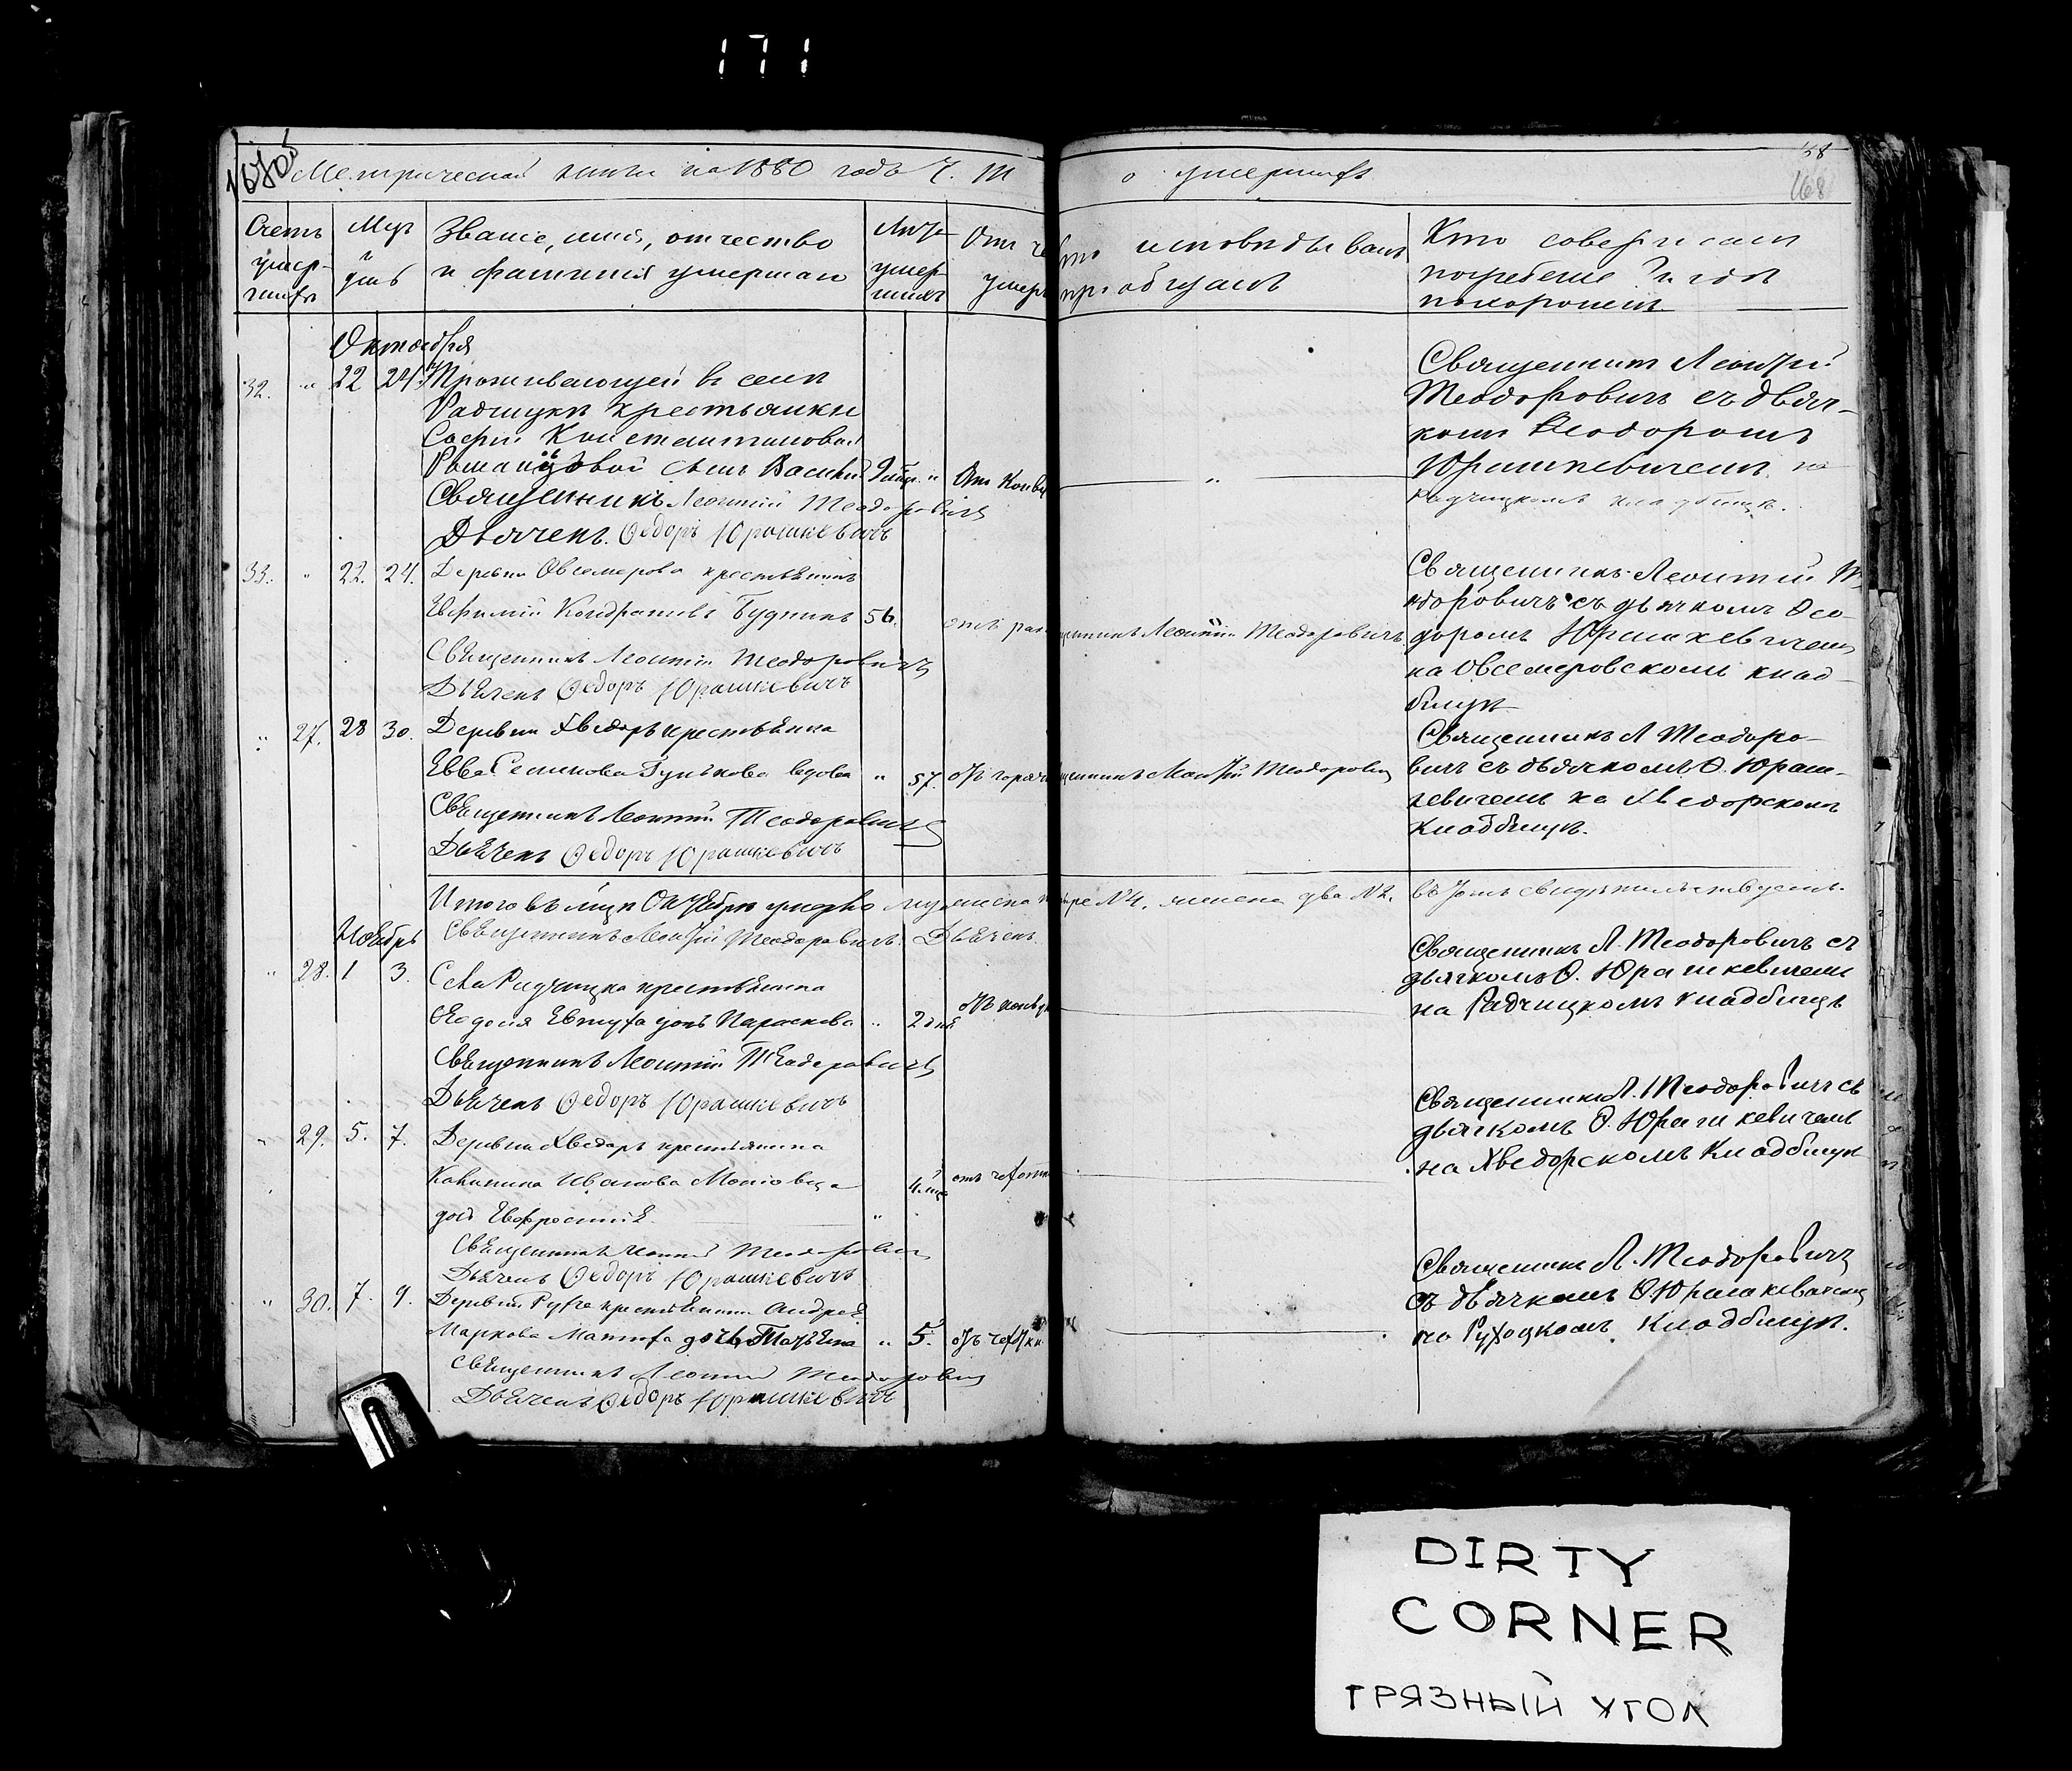 171
Метрической книги на 1880 годъ Ч. III
о умершихъ
58
168
Счетъ умер-шихъ
Мцъ и день
Званіе, имя, отчество
и фамилія умершаго
Лѣта умер-шихъ
Отъ че
умер
кто исповѣдывалъ
прiобщалъ
Кто совершалъ
погребеніе и гдѣ
похоронен
Октября
32. " 22 24 Проживающей въ селѣ
Радчицкѣ крестьянки
Софіи Константиновой
сынъ Василій " От Конву
Священникъ Леонтій Теодоровичъ
Дьячекъ Ѳедоръ Юрашкевичъ
Священникъ Леонтій
Теодоровичъ съ дьяч-
комъ Ѳеодоромъ
Юрашкевичемъ на
Радчицкомъ кладбищѣ.
33. " 22. 24. Деревни Овсемерова крестьянинъ
Евфимій Кондратовъ Будникъ 56. отъ
Священникъ Леонтій Теодоровичъ
Дьячекъ Ѳедоръ Юрашкевичъ
щенникъ Леонтій Теодоровичъ
Священникъ Леонтій Те-
одоровичъ съ дьячкомъ Ѳео-
доромъ Юрашкевичемъ
на Овсемеровскомъ клад-
бищѣ
" 27. 28 30. Деревни Хведоръ крестьянка
Евва вдова " 57. отъ горяч
Священникъ Леонтій Теодоровичъ
Дьячекъ Ѳедоръ Юрашкевичъ
щенникъ Леонтій Теодоровичъ
Священникъ Л Теодоро-
вичъ съ дьячкомъ Ѳ. Юраш-
кевичемъ на Хведорскомъ
кладбищѣ.
Итого въ мцѣ Октябрѣ умерло муж. пола
№ 4, женска два № 2, въ томъ свидѣтельствуемъ.
Ноябрь Священникъ Леонтій Теодоровичъ. Дьячекъ
" 28. 1 3. Села Радчицка крестьянина
дочь Параскева " 2 дня
Священникъ Леонтій Теодоровичъ
Дьячекъ Ѳедоръ Юрашкевичъ
Священникъ Л. Теодоровичъ съ
дьячкомъ Ѳ. Юрашкевичемъ
на Радчицкомъ кладбищѣ
" 29. 5. 7. Деревни Хведоръ крестьянина
Ивановa
дочь Евфросинія "
Священникъ Леонтій Теодоровичъ
Дьячекъ Ѳедоръ Юрашкевичъ
Священникъ Л. Теодоровичъ съ
дьячкомъ Ѳ. Юрашкевичемъ
на Хведорскомъ Кладбищѣ
" 30. 7. 9. Деревни крестьянина Андрея
Маркова дочь Татьяна " 5.
Священникъ Леонтій Теодоровичъ
Дьячекъ Ѳедоръ Юрашкевичъ
Священникъ Л. Теодоровичъ
съ дьячкомъ Ѳ. Юрашкевичемъ
на Кладбищѣ.
DIRTY
CORNER
ГРЯЗНЫЙ УГОЛ